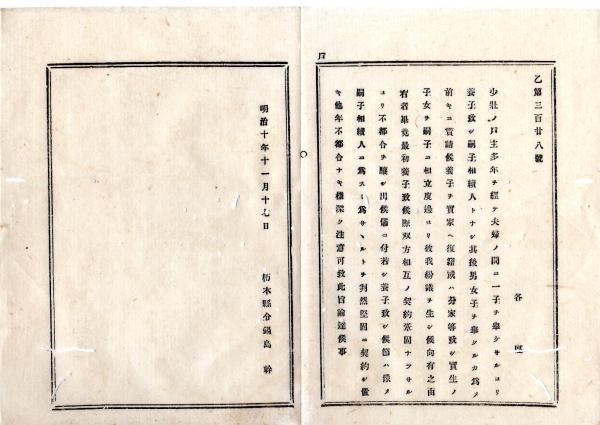 戸
乙第三百廿八號
各區
少壯ノ戸主多年ヲ經テ夫婦ノ間ニ一子ヲ擧シサルヨリ
養子致シ嗣子相續人トナシ其後男女子ヲ擧シルカ爲メ
前キニ貰請候養子ヲ實家ヘ復籍或ハ分家等致シ實生ノ
子女ヲ嗣子ニ相立度邊ヨリ彼我紛議ヲ生シ候向有之由
右者畢竟最初養子致候際双方相互ノ契約鞏固ナラサル
ヨリ不都合ヲ醸シ出候儀ニ付若シ養子致シ候節ハ豫メ
嗣子相續人ニ爲スト爲サヽルトヲ判然堅固ニ契約シ置
キ他年不都合ナキ樣深ク注意可致此旨諭達候事
明治十年十一月十七日
栃木縣令鍋島幹